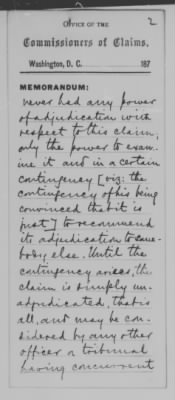 2
OFFICE OF THE
Commissioners of Claims,
Washington, D. C. 187
MEMORANDUM:
never had any power
of adjudication with
respect to this claim,
only the power to exam-
ine it and in a certain
contingency [viz: the
contingency of his being
convinced that it is
just] to recommend
its adjudication to some-
body else. Until the
contingency arises, the
claim is simply un-
adjudicated, that is
all, and may be con-
sidered by any other
officer or tribunal
having concurrent